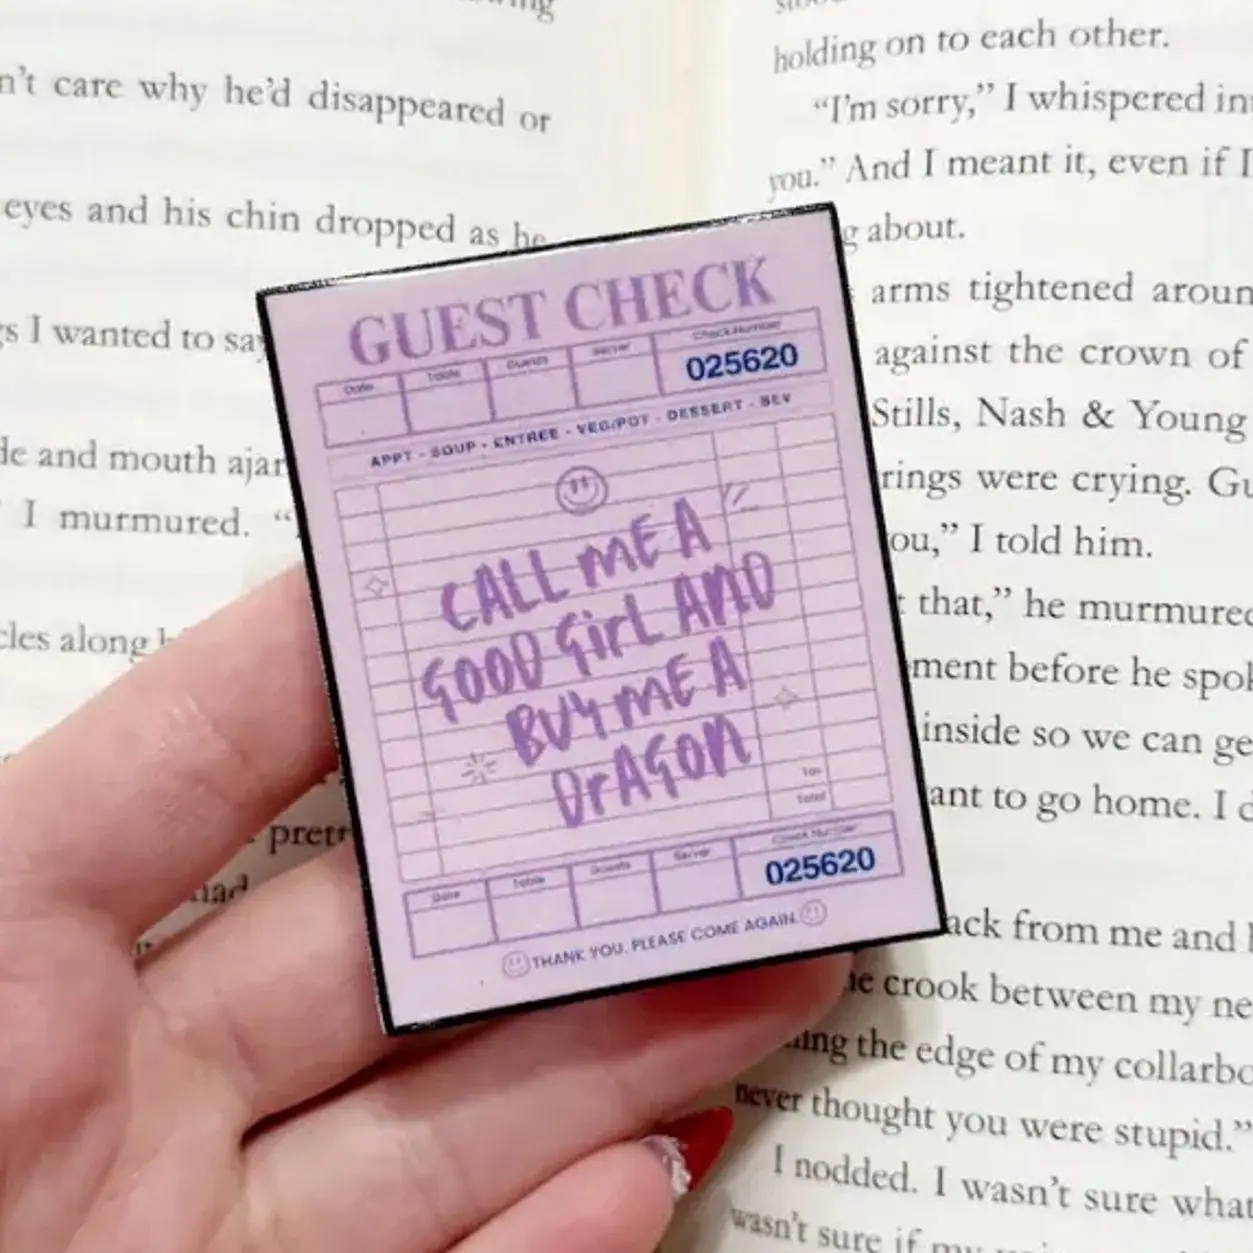 n't care why he'd disappeared or
eyes and his chin dropped as he
s I wanted to say
and mouth ajar
I murmured. "
along
prett
had
holding on to each other.
"I'm sorry," I whispered
you." And I meant it, even if I
about.
arms tightened
against the crown of
Stills, Nash & Young
rings were crying.
ou," I told him.
that," he murmured
ment before he
inside so we can
ant to go home. I
ack from me and
crook between my
the edge of my
never thought you were stupid."
I nodded. I wasn't sure what
wasn't sure if my
GUEST CHECK
Date Table Guests Server Check Number
025620
APPT - SOUP - ENTREE - VEG/POT - DESSERT - BEV
CALL ME A
GOOD GIRL AND
BUY ME A
DRAGON
Tax
Total
Date Table Guests Server Check Number
025620
THANK YOU. PLEASE COME AGAIN.